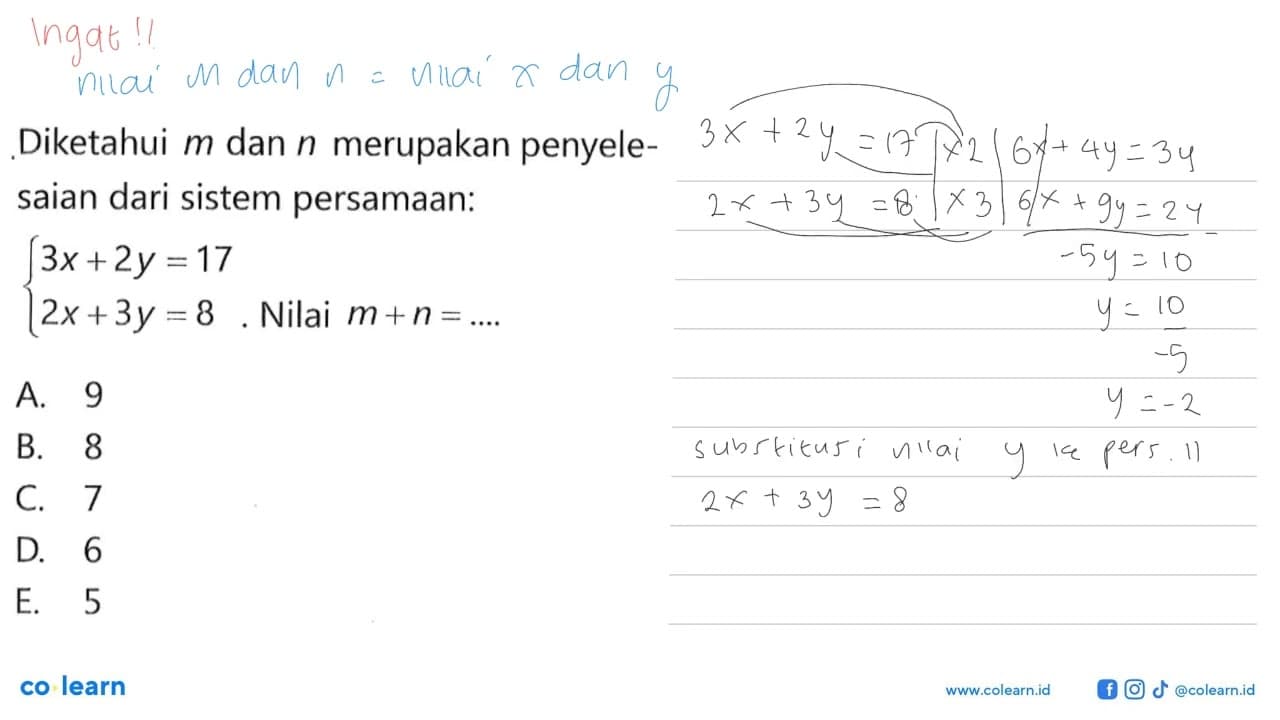 Ingat !!
nilai m dan n = nilai x dan y
Diketahui m dan n merupakan penyele-
saian dari sistem persamaan:
3x + 2y = 17
2x + 3y = 8 . Nilai m + n = ....
A. 9
B. 8
C. 7
D. 6
E. 5
3x + 2y = 17 | x 2 | 6x + 4y = 34
2x + 3y = 8 | x 3 | 6x + 9y = 24 -
-5y = 10
y = 10
-5
y = -2
substitusi nilai y ke pers. II
2x + 3y = 8
co learn
www.colearn.id @colearn.id